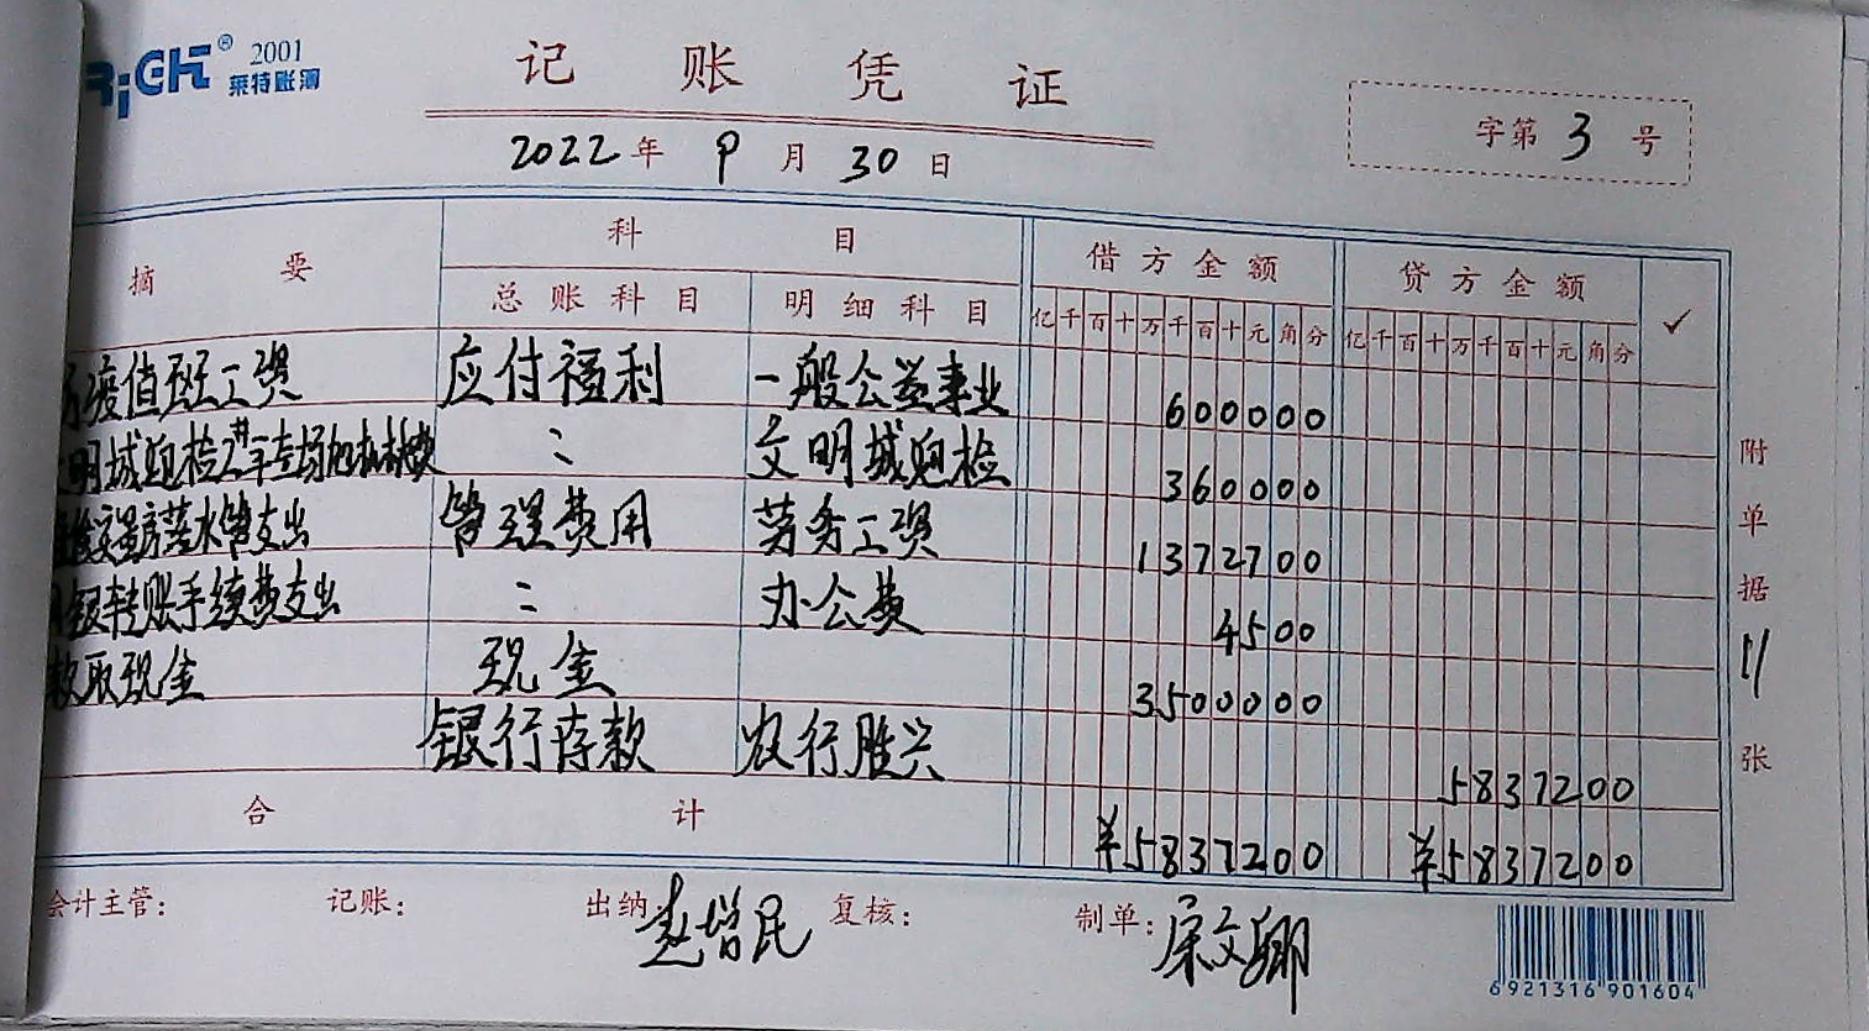 RiGHT® 2001
莱特账簿
记账凭证
2022年9月30日
字第3号
摘要 科目 借方金额 贷方金额 ✓
总账科目 明细科目 亿千百十万千百十元角分 亿千百十万千百十元角分
疫值班工资 应付福利 一般公益事业 600000
明城迎检 〃 文明城迎检 360000
水管支出 管理费用 劳务工资 1372700
银转账手续费支出 〃 办公费 4500
取现金 现金 3500000
银行存款 农行胜兴 5837200
合计 ¥5837200 ¥5837200
附单据11张
会计主管: 记账: 出纳:赵增民 复核: 制单:宋文卿
6921316901604